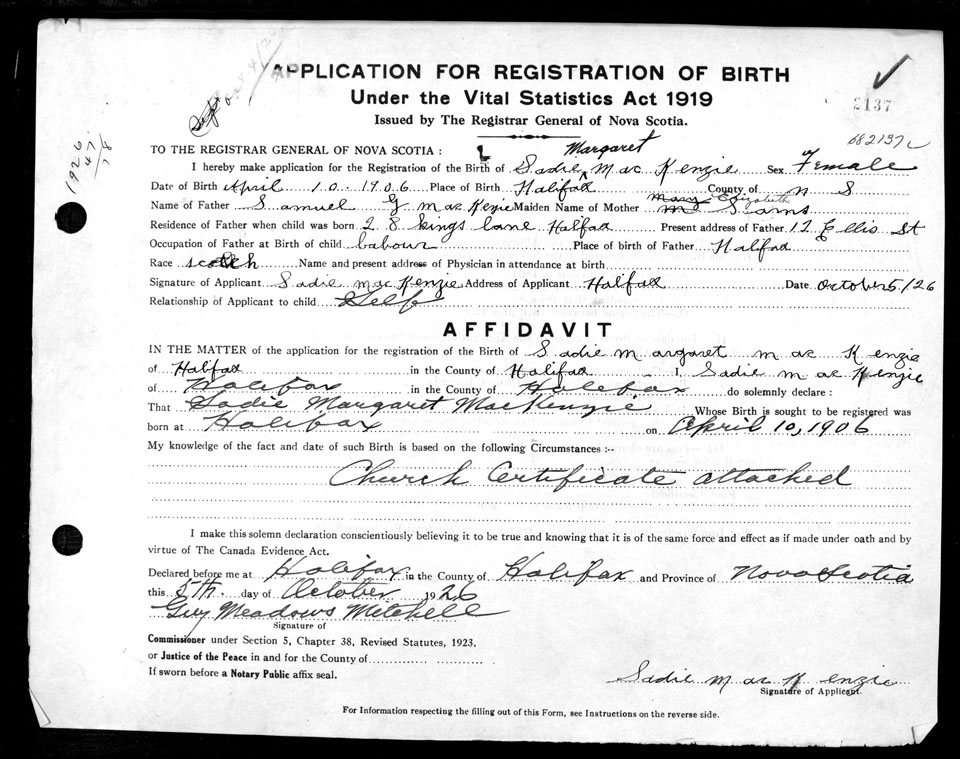 APPLICATION FOR REGISTRATION OF BIRTH
Under the Vital Statistics Act 1919
2137
Issued by The Registrar General of Nova Scotia.
682137
1926
47
78
Margaret
TO THE REGISTRAR GENERAL OF NOVA SCOTIA :
I hereby make application for the Registration of the Birth of Sadie Mac Kenzie Sex Female
Date of Birth April 10. 1906 Place of Birth Halifax County of N S
Mary Elizabeth
Name of Father Samuel G Mac Kezie Maiden Name of Mother Siams
Residence of Father when child was born 28 kings lane Halfad Present address of Father 12 Ellis St
Occupation of Father at Birth of child labour Place of birth of Father Halifad
Race scotch Name and present address of Physician in attendance at birth
Signature of Applicant Sadie Mac Kenzie Address of Applicant Halifad Date October 5/26
Relationship of Applicant to child Self
AFFIDAVIT
IN THE MATTER of the application for the registration of the Birth of Sadie Margaret Mac Kenzie
of Halfad in the County of Halifad I, Sadie Mac Kenzie
of Halifax in the County of Halifax do solemnly declare :
That Sadie Margaret MacKenzie Whose Birth is sought to be registered was
born at Halifax on April 10, 1906
My knowledge of the fact and date of such Birth is based on the following Circumstances :--
Church Certificate attached
I make this solemn declaration conscientiously believing it to be true and knowing that it is of the same force and effect as if made under oath and by
virtue of The Canada Evidence Act.
Declared before me at Halifax in the County of Halifax and Province of Nova Scotia
this 5th. day of October 1926
Guy Meadows Mitchell
Signature of
Commissioner under Section 5, Chapter 38, Revised Statutes, 1923.
or Justice of the Peace in and for the County of
If sworn before a Notary Public affix seal.
Sadie Mac Kenzie
Signature of Applicant.
For Information respecting the filling out of this Form, see Instructions on the reverse side.